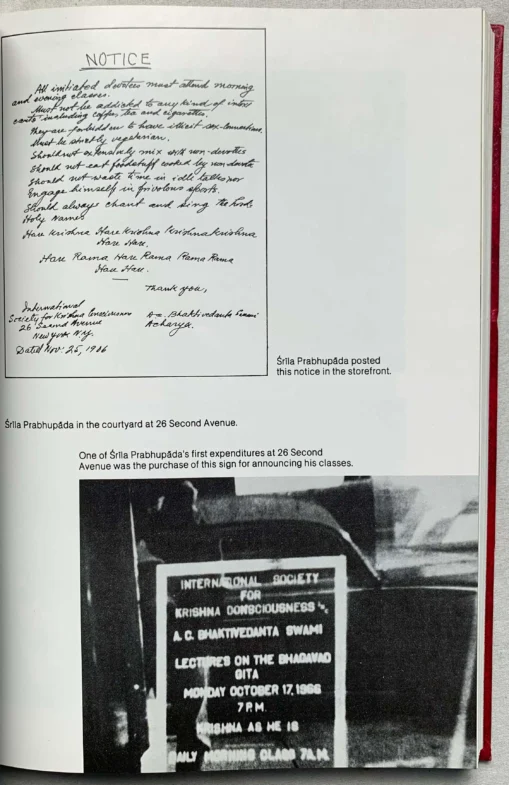 NOTICE
All initiated devotees must attend morning
and evening classes.
Must not be addicted to any kind of intoxi
cants including coffee, tea and cigarettes.
They are forbidden to have illicit sex-connections.
Must be strictly vegetarian.
Should not extensively mix with non-devotees
Should not eat foodstuff cooked by non devote
Should not waste time in idle talks nor
Engage himself in frivolous sports.
Should always chant and sing the Lord's
Holy Names
Hare Krishna Hare Krishna Krishna Krishna
Hare Hare.
Hare Rama Hare Rama Rama Rama
Hare Hare.
Thank you,
International
Society for Krishna Consciousness
26 Second Avenue
New York N.Y.
Dated Nov. 25, 1966
A.C. Bhaktivedanta Swami
Acharya.
Śrīla Prabhupāda posted
this notice in the storefront.
Śrīla Prabhupāda in the courtyard at 26 Second Avenue.
One of Śrīla Prabhupāda's first expenditures at 26 Second
Avenue was the purchase of this sign for announcing his classes.
INTERNATIONAL SOCIETY
FOR
KRISHNA CONSCIOUSNESS INC
A. C. BHAKTIVEDANTA SWAMI
LECTURES ON THE BHAGAVAD
GITA
MONDAY OCTOBER 17, 1966
7 P.M.
KRISHNA AS HE IS
DAILY MORNING CLASS 7A.M.